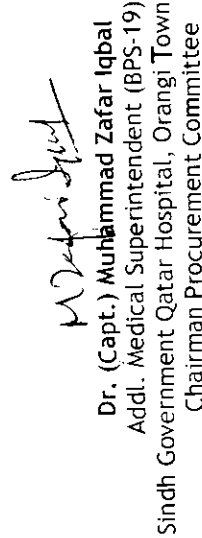 M Zafar Iqbal
Dr. (Capt.) Muhammad Zafar Iqbal
Addl. Medical Superintendent (BPS-19)
Sindh Government Qatar Hospital, Orangi Town
Chairman Procurement Committee